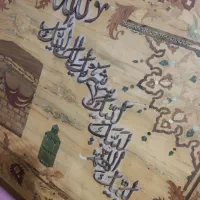 لبيك اللهم لبيك لبيك لا شريك لك لبيك